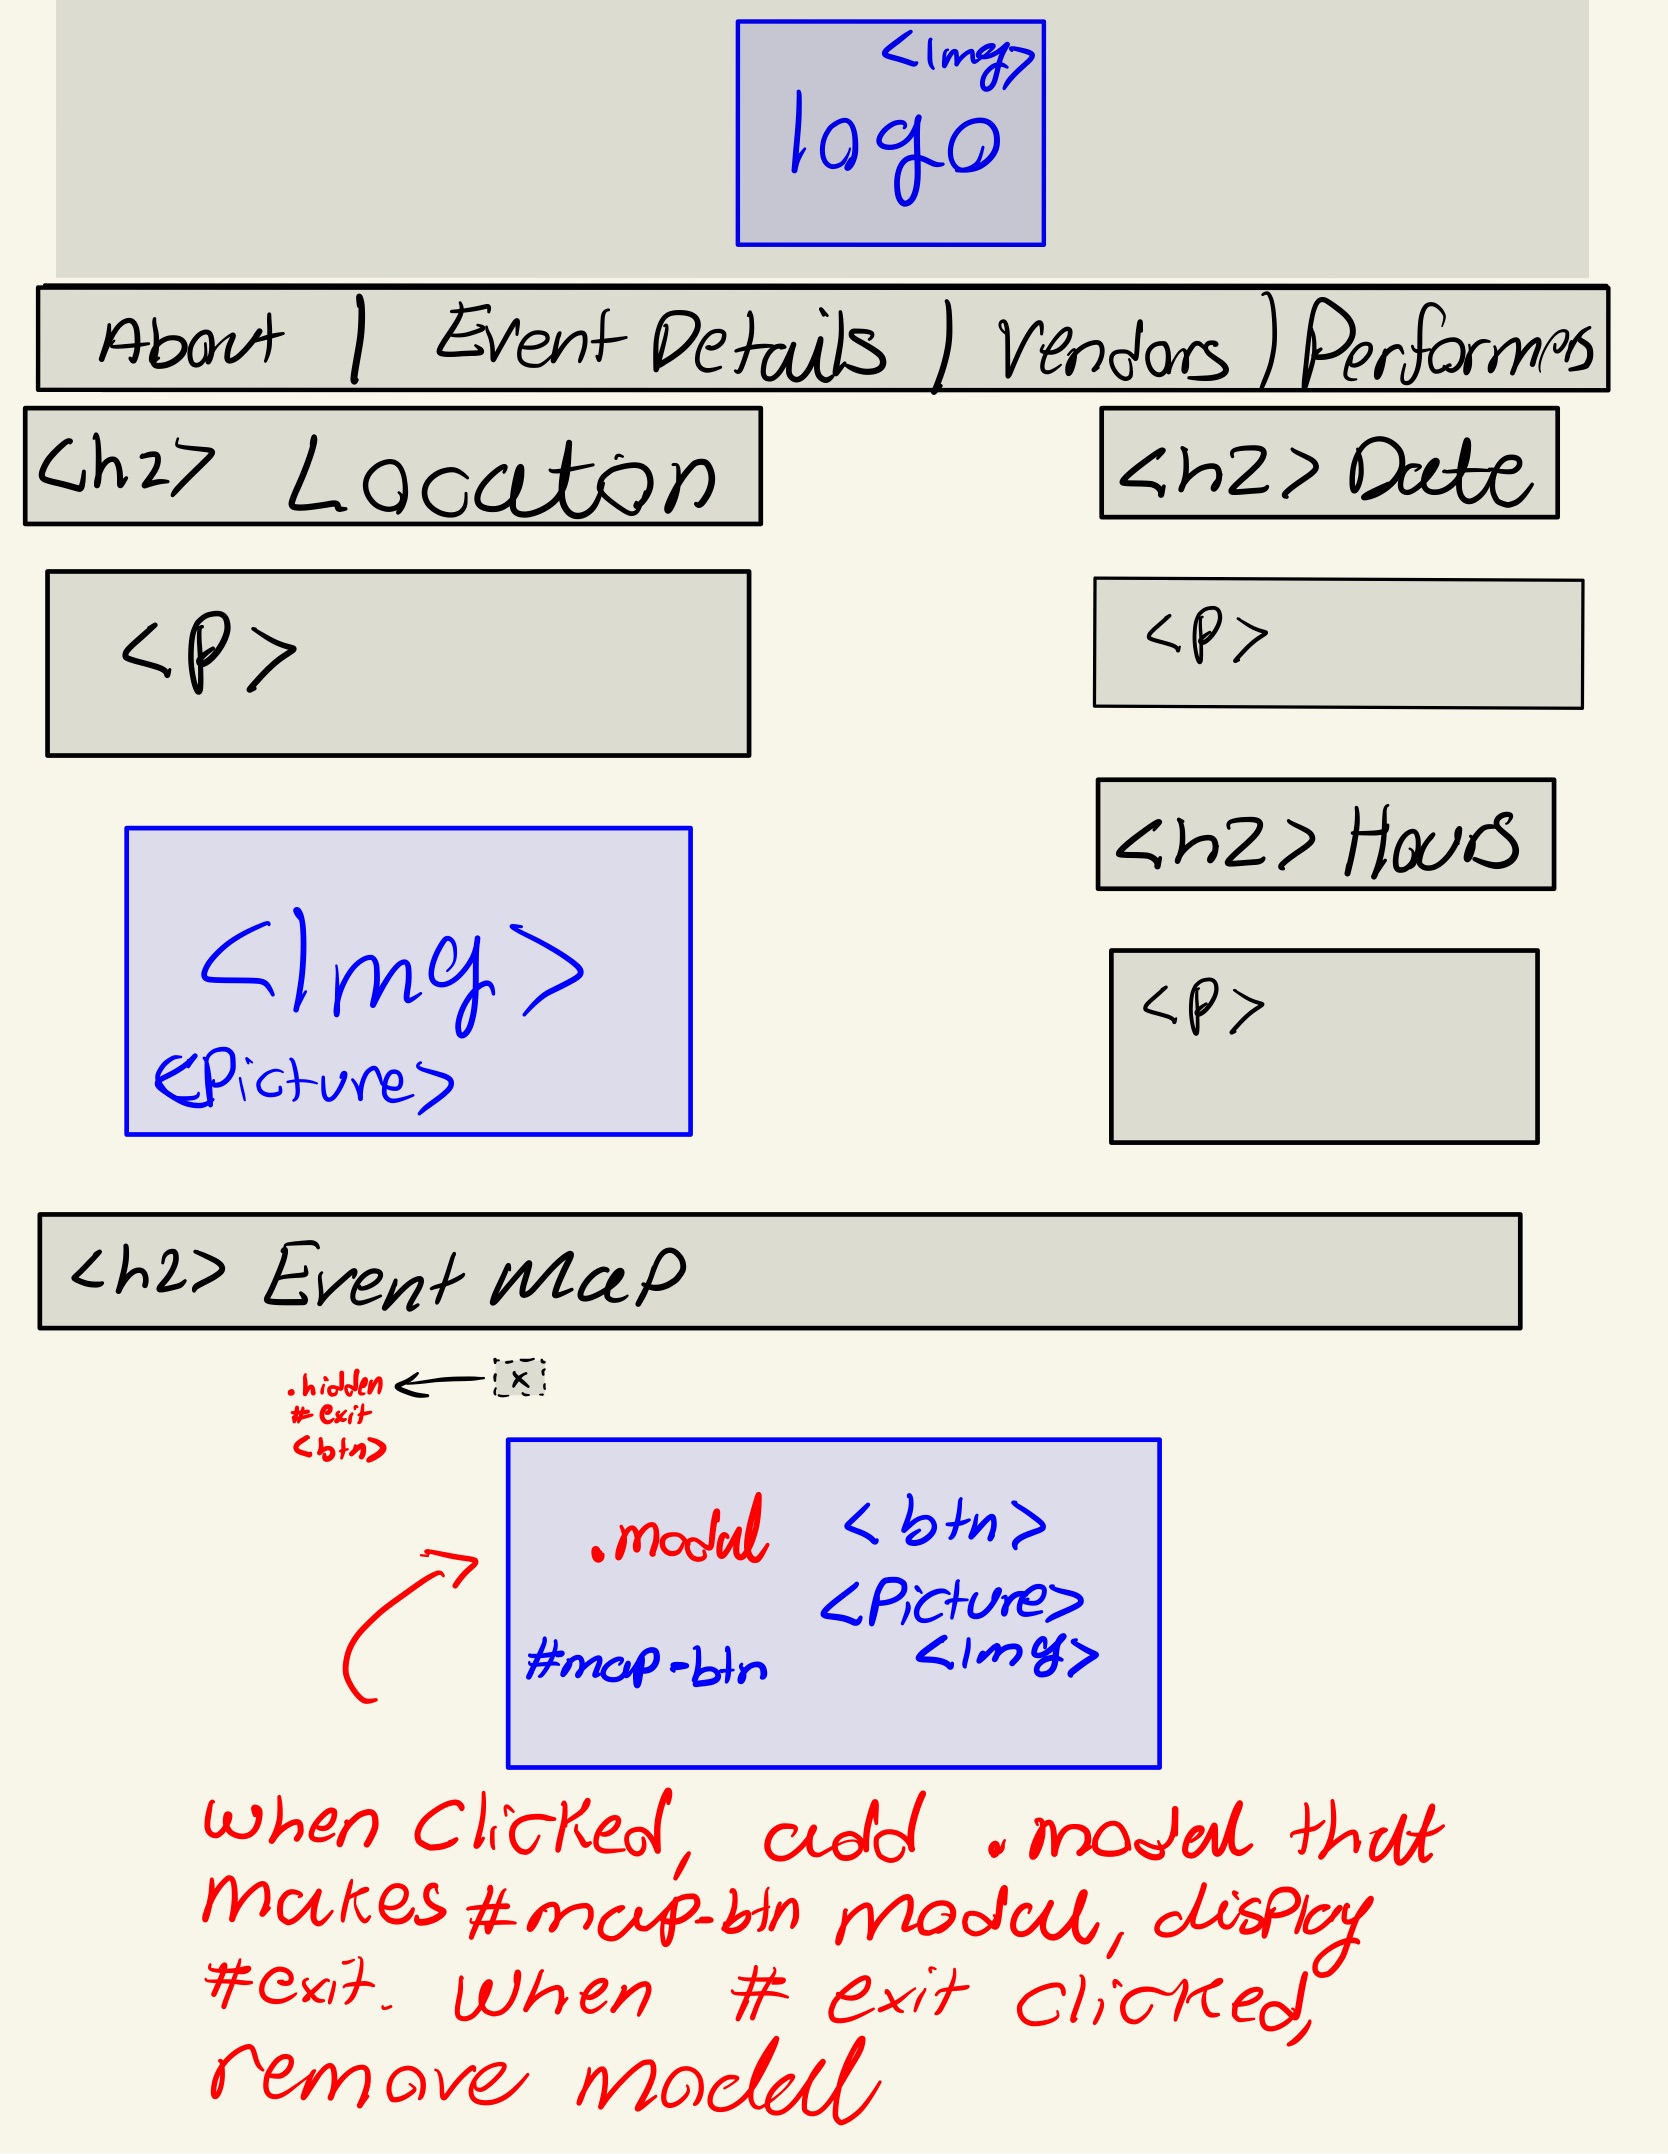 <Img>
logo
About | Event Details | Vendors | Performers
<h2> Locaton
<h2> Date
<P>
<P>
<h2> Hours
<Img>
<Picture>
<P>
<h2> Event Map
x
.hidden
#exit
<btn>
.modal <btn>
<Picture>
#map-btn <Img>
when Clicked, add .modal that
makes #map-btn modal, display
#exit. when #exit clicked,
remove modal